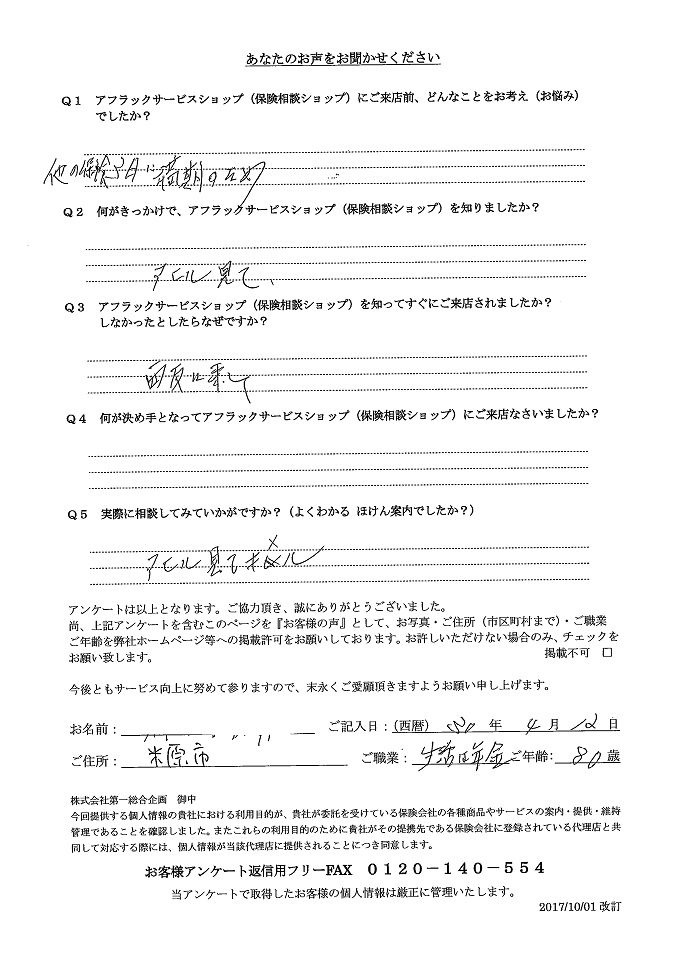 あなたのお声をお聞かせください
Q1 アフラックサービスショップ（保険相談ショップ）にご来店前、どんなことをお考え（お悩み）
でしたか？
他の保険 満期のため
Q2 何がきっかけで、アフラックサービスショップ（保険相談ショップ）を知りましたか？
アヒル見て、
Q3 アフラックサービスショップ（保険相談ショップ）を知ってすぐにご来店されましたか？
しなかったとしたらなぜですか？
Q4 何が決め手となってアフラックサービスショップ（保険相談ショップ）にご来店なさいましたか？
Q5 実際に相談してみていかがですか？（よくわかる ほけん案内でしたか？）
アヒル見て
アンケートは以上となります。ご協力頂き、誠にありがとうございました。
尚、上記アンケートを含むこのページを『お客様の声』として、お写真・ご住所（市区町村まで）・ご職業
ご年齢を弊社ホームページ等への掲載許可をお願いしております。お許しいただけない場合のみ、チェックを
お願い致します。 掲載不可 □
今後ともサービス向上に努めて参りますので、末永くご愛顧頂きますようお願い申し上げます。
お名前： ご記入日：（西暦） 年 4月12日
ご住所：米原市 ご職業：生活は年金 ご年齢：80歳
株式会社第一総合企画 御中
今回提供する個人情報の貴社における利用目的が、貴社が委託を受けている保険会社の各種商品やサービスの案内・提供・維持
管理であることを確認しました。またこれらの利用目的のために貴社がその提携先である保険会社に登録されている代理店と共
同して対応する際には、個人情報が当該代理店に提供されることにつき同意します。
お客様アンケート返信用フリーFAX 0120－140－554
当アンケートで取得したお客様の個人情報は厳正に管理いたします。
2017/10/01 改訂